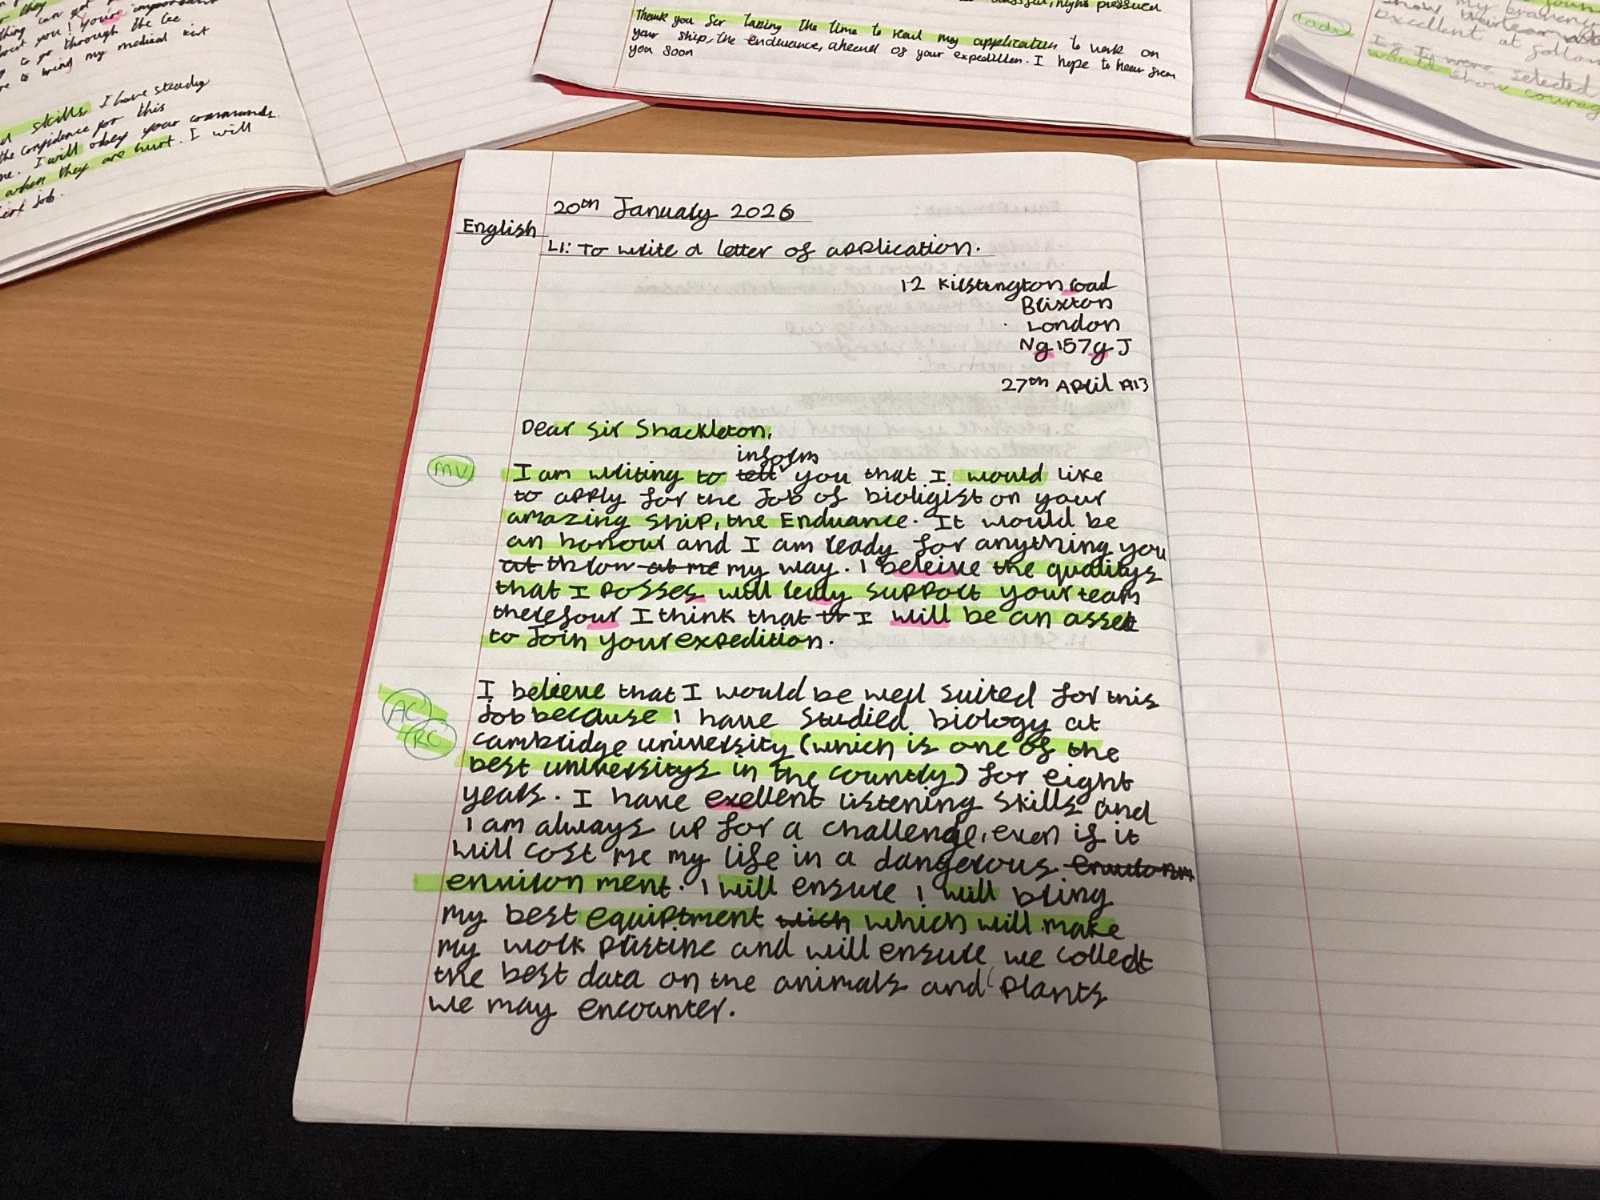 thing can get
about you! you're important
to go through the ice
re to bring my medical kit
d skills. I have steady
the confidence for this
me. I will obey your commands
when they are hurt. I will
job.
Thank you for taking the time to read my application to work on
your ship, the endurance, ahead of your expedition. I hope to hear from
you soon
excellent at foll
If I were selected
would show courag
20th January 2026
English
LI: To write a letter of application.
12 road
Brixton
London
Ng157gJ
27th April 1913
Dear Sir Shackleton,
inform
MV
I am writing to tell you that I would like
to apply for the Job of bioligist on your
amazing ship, the Enduance. It would be
an honour and I am ready for anything you
at throw at me my way. I beleive the qualitys
that I posses will realy support your team
therefour I think that I will be an asset
to Join your expedition.
AC
RC
I believe that I would be well suited for this
Job because I have studied biology at
Cambridge university (which is one of the
best universitys in the country) for eight
years. I have exellent listening skills and
I am always up for a challenge, even if it
will cost me my life in a dangerous
environ ment. I will ensure I will bring
my best equiptment wich which will make
my work pristine and will ensure we collect
the best data on the animals and plants
we may encounter.